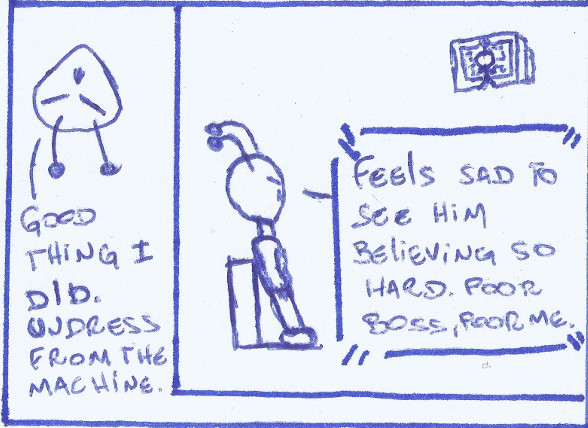 GOOD
THING I
DID.
UNDRESS
FROM THE
MACHINE.
FEElS SAD TO
SEE HiM
BEliEViNG SO
HARD. POOR
BOSS, POOR ME.